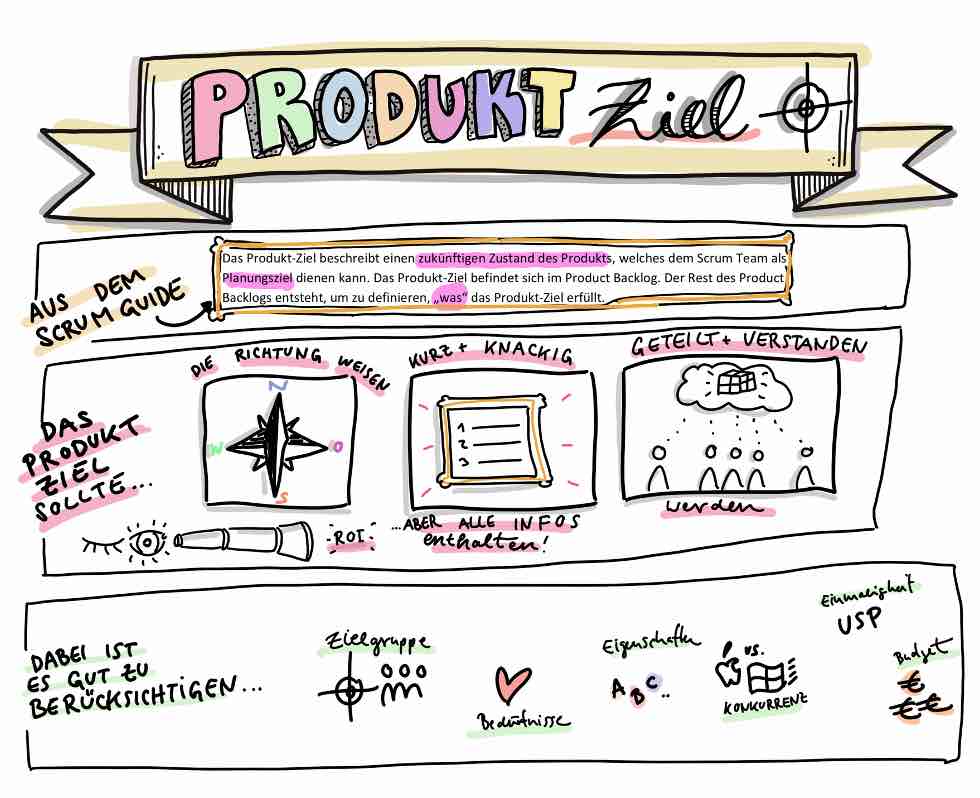 PRODUKT Ziel
AUS DEM
SCRUM GUIDE
Das Produkt-Ziel beschreibt einen zukünftigen Zustand des Produkts, welches dem Scrum Team als
Planungsziel dienen kann. Das Produkt-Ziel befindet sich im Product Backlog. Der Rest des Product
Backlogs entsteht, um zu definieren, „was“ das Produkt-Ziel erfüllt.
DAS
PRODUKT
ZIEL
SOLLTE...
DIE RICHTUNG WEISEN
N
W O
S
ROI
KURZ + KNACKIG
1
2
3
...ABER ALLE INFOS
enthalten!
GETEILT + VERSTANDEN
werden
DABEI IST
ES GUT ZU
BERÜCKSICHTIGEN...
Zielgruppe
Bedürfnisse
Eigenschaften
A B C ..
vs.
KONKURRENZ
Einmaligkeit
USP
Budget
€
€ €